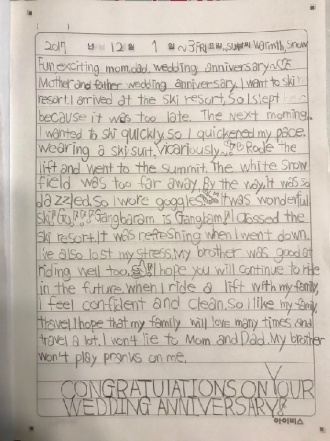 2017 년 12 월 1 일 ~3 Warmth, Snow
Fun exciting mom, dad, wedding anniversary~
Mother and father wedding anniversary. I want to ski
resort. I arrived at the ski resort. So I slept
because it was too late. The next morning.
I wanted to ski quickly. So I quickened my pace.
Wearing a ski suit. Vicariously Rode the
lift and went to the summit. The white snow
field was too far away. By the way. It was so
dazzled. So I wore goggles. It was wonderful
ski! Go, Gangbaram is Gangbam! I classed the
ski resort. It was refreshing when I went down.
I've also lost my stress. My brother was good at
riding well too. I hope you will continue to ride
in the future. When I ride a lift with my family,
I feel confident and clean. So I like my family,
travel. I hope that my family will love many times and
travel a lot. I won't lie to Mom and Dad. My brother
won't play pranks on me.
CONGRATUIATIONS ON YOUR
WEDDING ANNIVERSARY!
아이비스